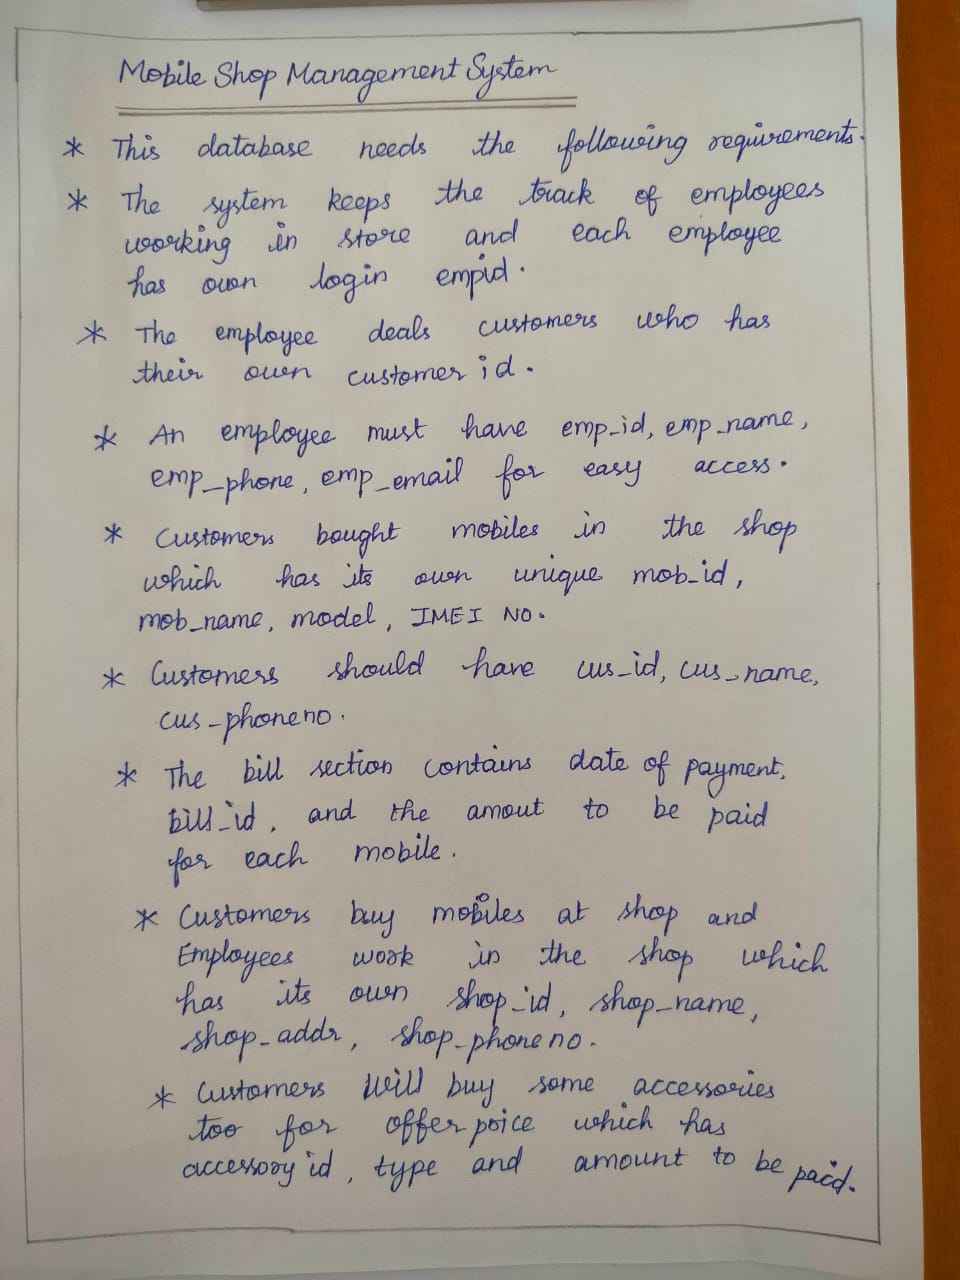 Mobile Shop Management System
* This database needs the following requirements.
* The system keeps the track of employees
working in store and each employee
has own login empid.
* The employee deals customers who has
their own customer id.
* An employee must have emp_id, emp_name,
emp_phone, emp_email for easy access.
* Customers bought mobiles in the shop
which has its own unique mob_id,
mob_name, model, IMEI NO.
* Customers should have cus_id, cus_name,
cus_phoneno.
* The bill section contains date of payment,
bill_id, and the amout to be paid
for each mobile.
* Customers buy mobiles at shop and
Employees work in the shop which
has its own shop_id, shop_name,
shop_addr, shop_phoneno.
* Customers will buy some accessories
too for offer price which has
accessory id, type and amount to be paid.